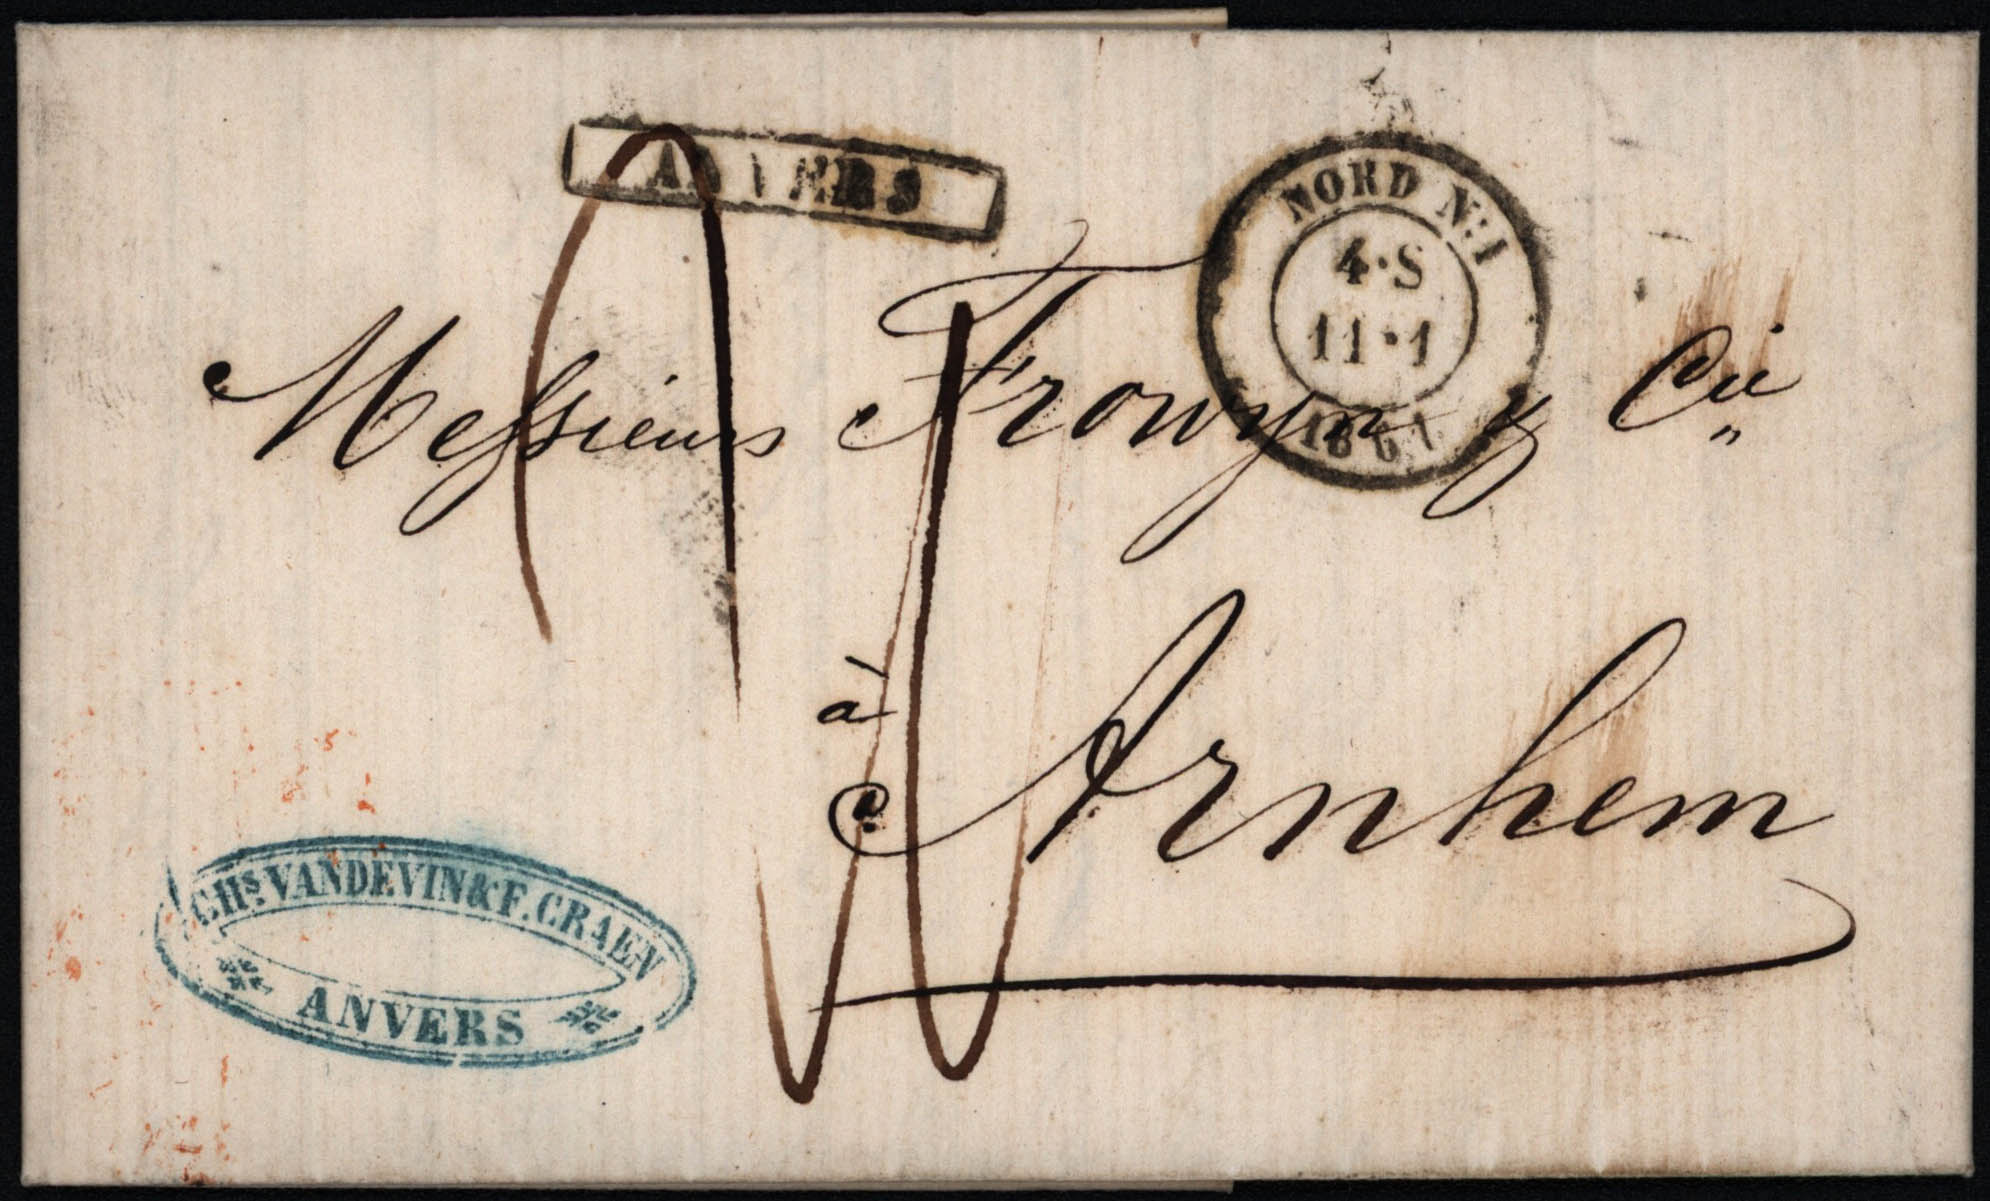 ANVERS
NORD N:1
4·S
11·1
Messieurs Frowyn & Cie
à
Arnhem
CHS. VANDEVIN & F. CRAEN
ANVERS